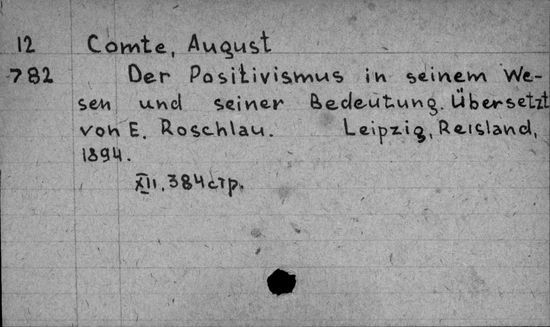 12 Comte, August
782 Der Positivismus in seinem We-
sen und seiner Bedeutung. Übersetzt
von E. Roschlau. Leipzig, Reisland,
1894.
XII, 384 стр.